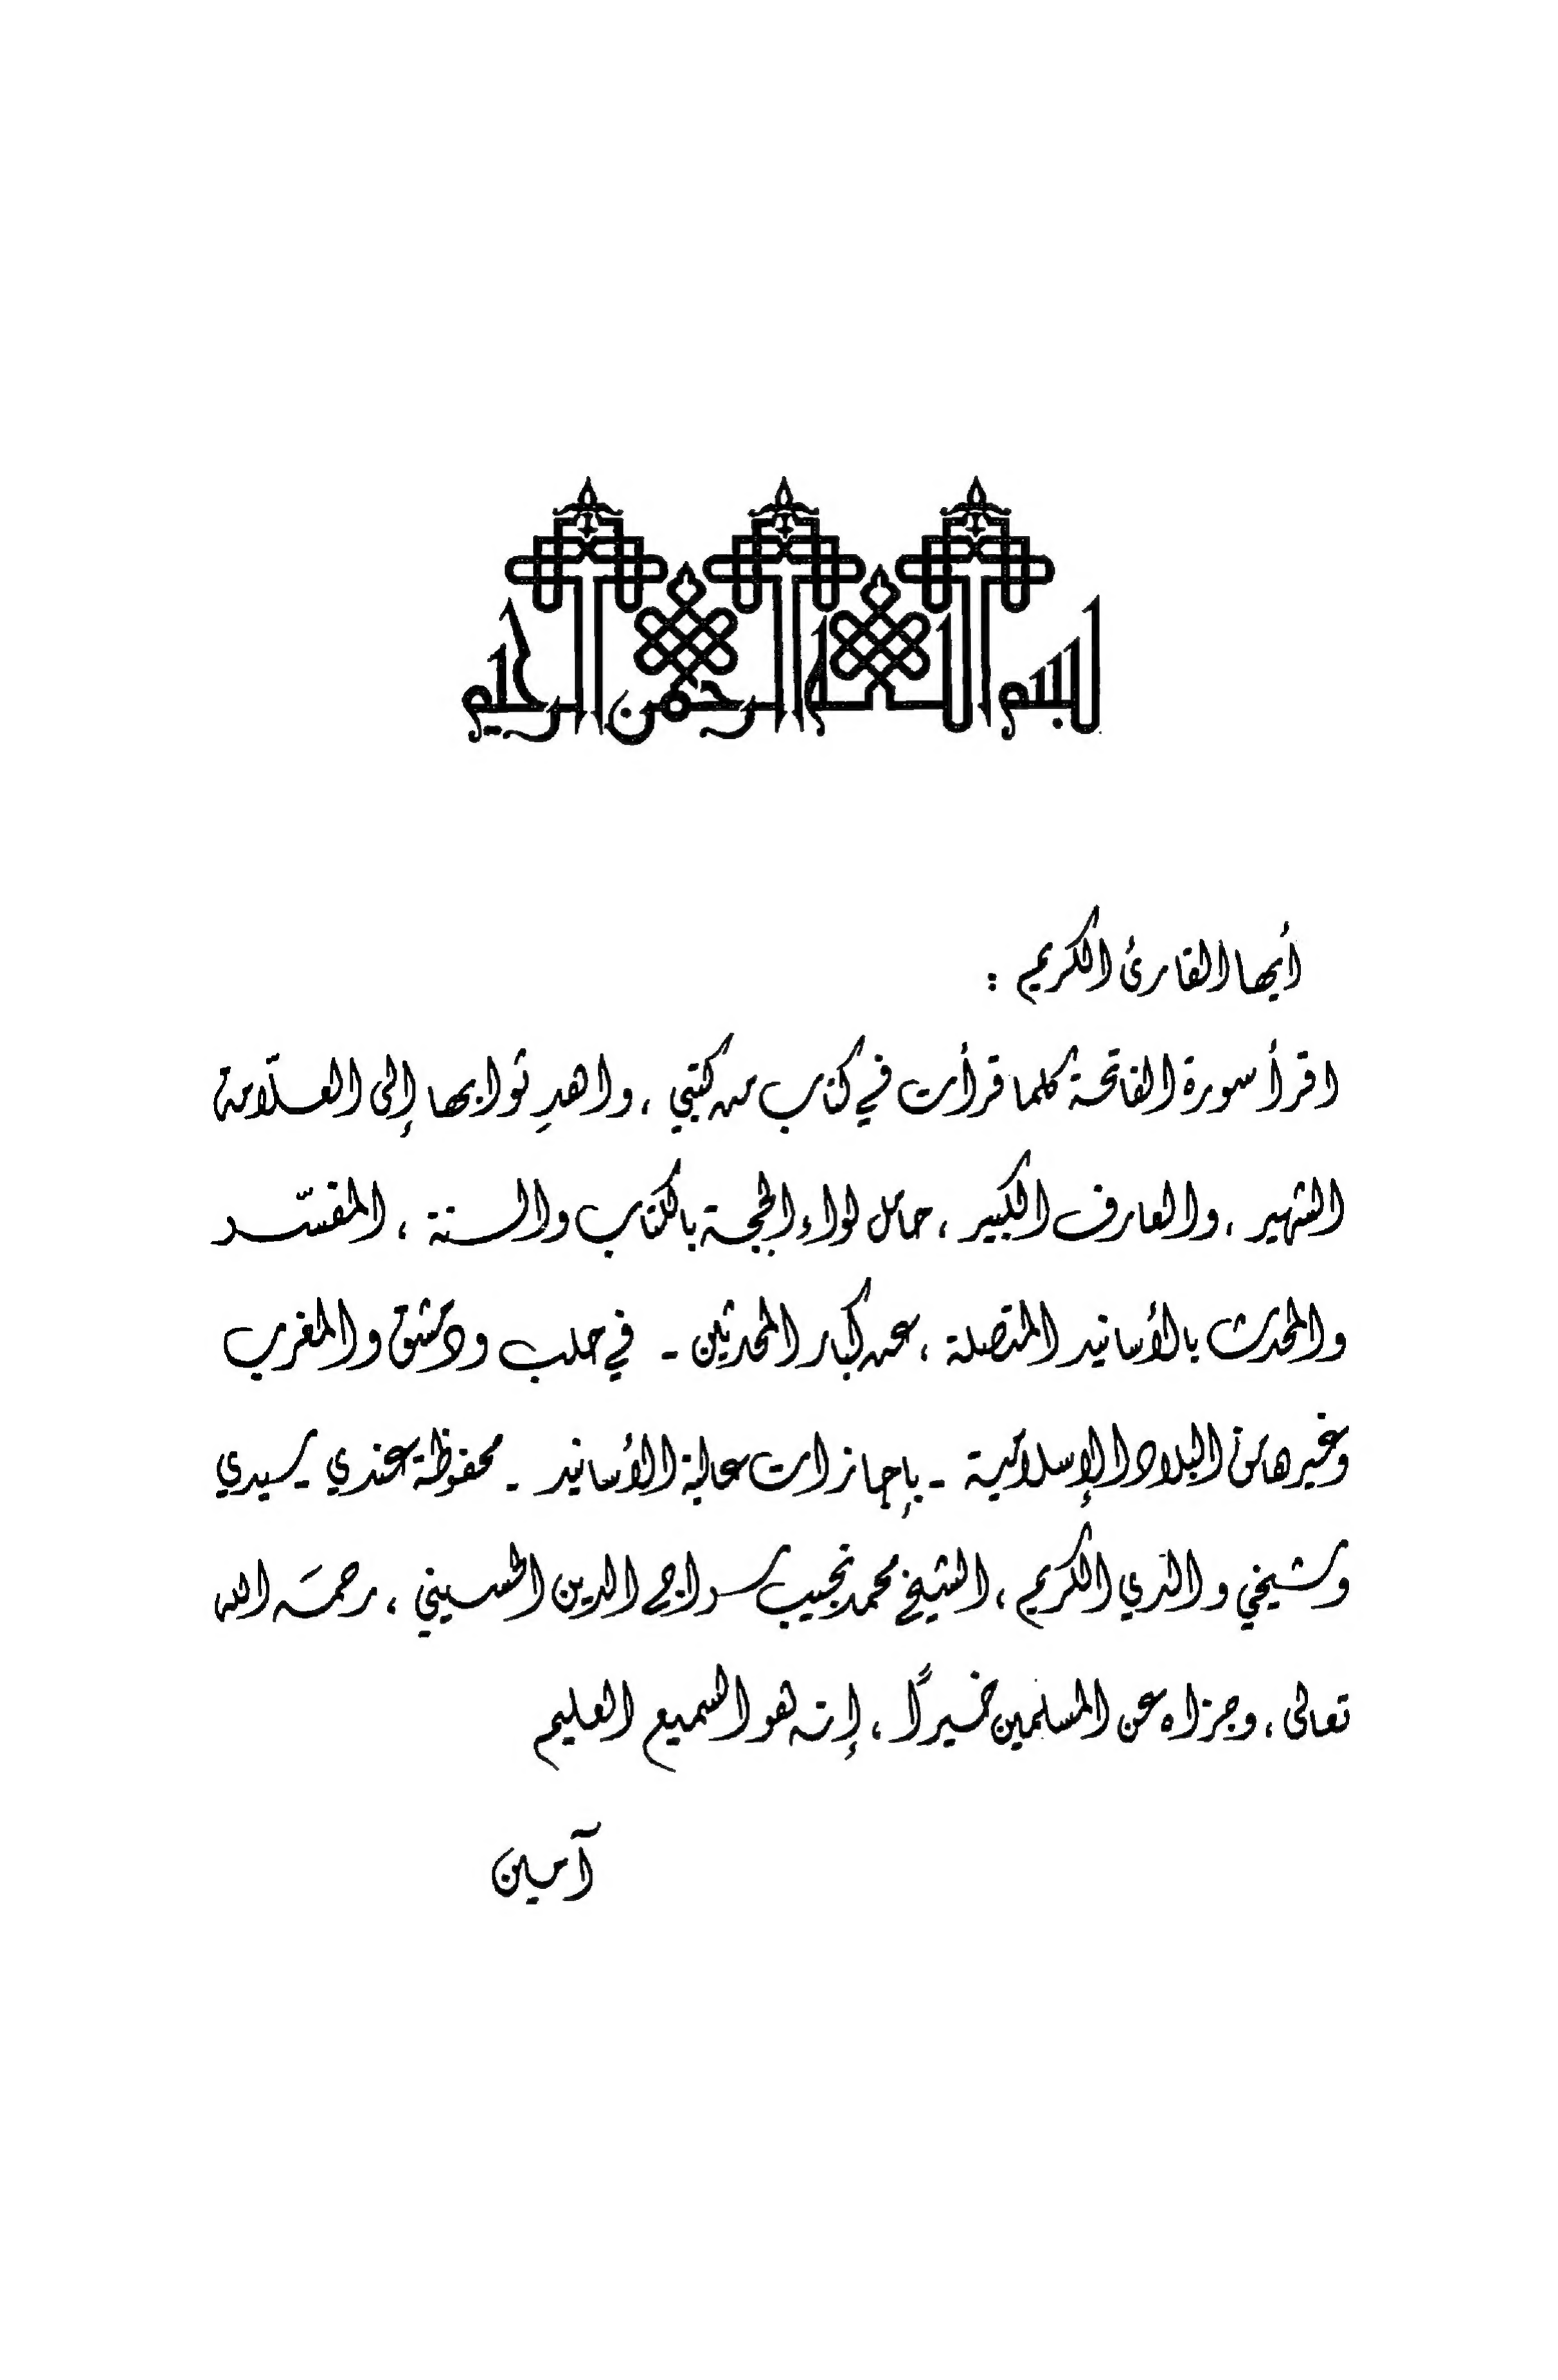 بسم الله الرحمن الرحيم
أيها القارئ الكريم :
اقرأ سورة الفاتحة كلما قرأت في كتاب من كتبي ، واهدِ ثوابها إلى العلّامة
الشهير ، والعارف الكبير ، حامل لواء الحجة بالكتاب والسنة ، المفسّر
والمحدث بالأسانيد المتصلة ، عن كبار المحدثين - في حلب ودمشق والمغرب
وغيرها من البلاد الإسلامية - بإجازات عالية الأسانيد - محفوظة عندي سيدي
وشيخي والدي الكريم ، الشيخ محمد نجيب سراج الدين الحسيني ، رحمه الله
تعالى ، وجزاه عن المسلمين خيرًا ، إنه هو السميع العليم
آمين